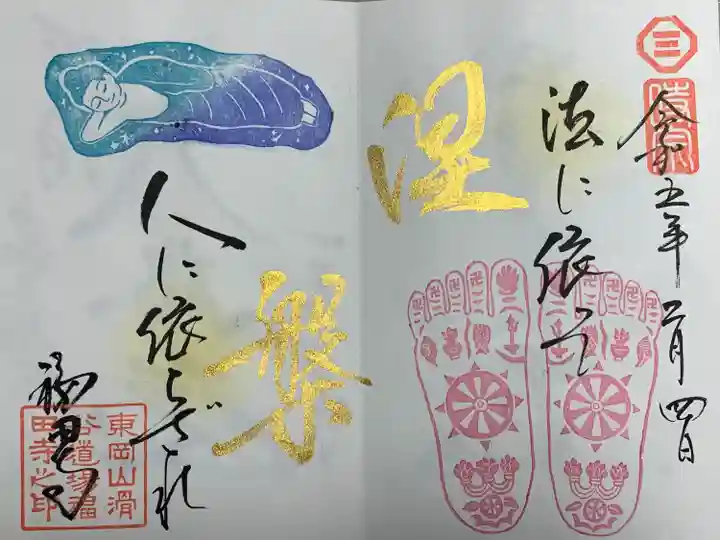 令和五年二月四日
法に依って
涅
槃
人に依らざれ
福田寺
東岡山滑
谷道場福
田寺之印